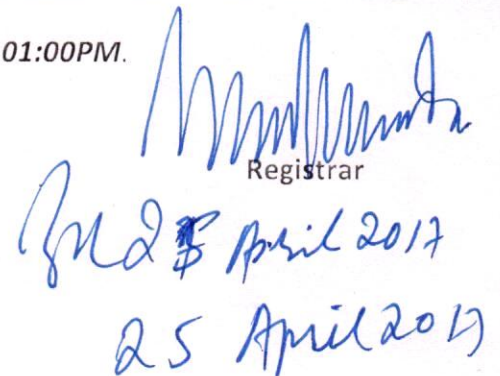 01:00PM.
Registrar
25 April 2017
25 April 2017